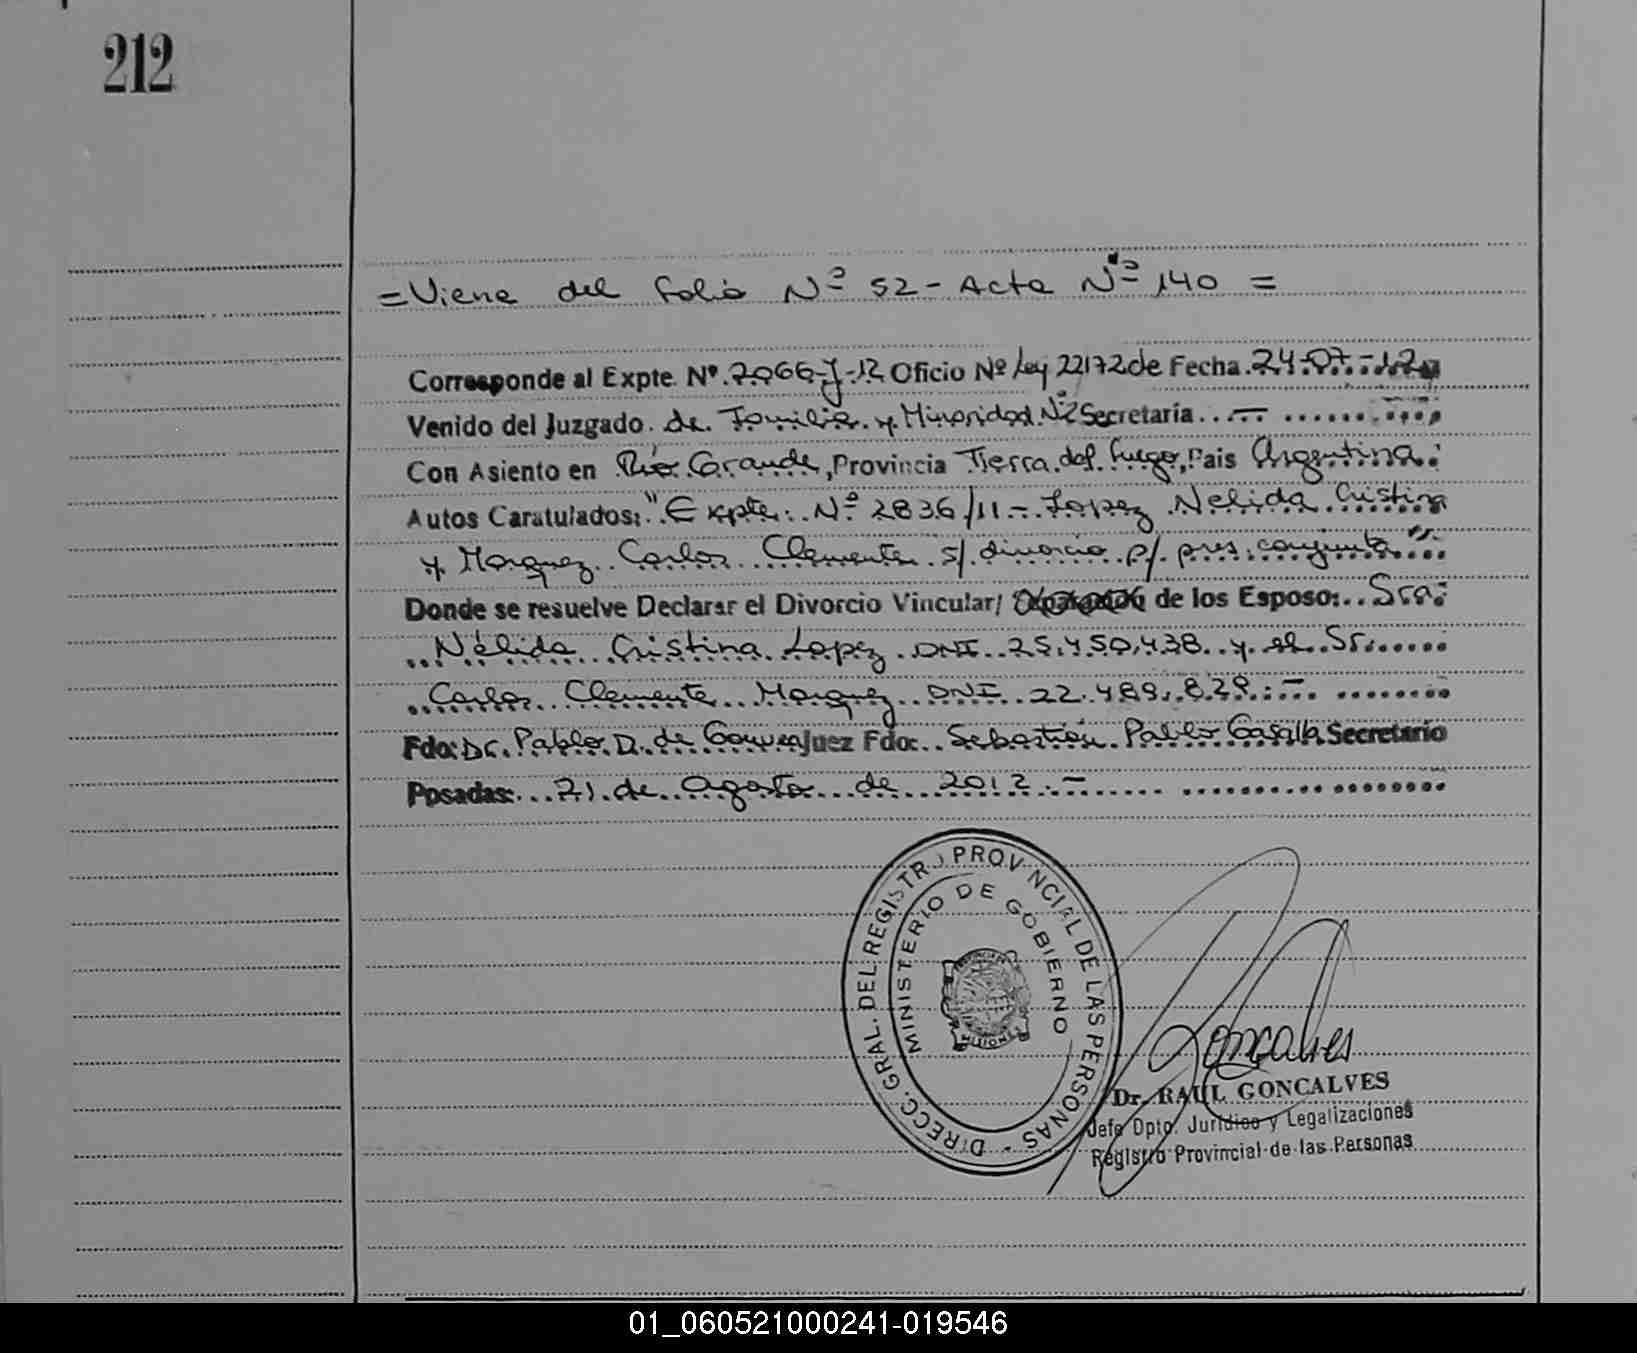 212
=Viene del folio Nº 52 - Acta Nº 140 =
Corresponde al Expte. Nº. 7066-J-12 Oficio Nº Ley 22172 de Fecha. 24.07.-12
Venido del Juzgado. de. Familia. y. Minoridad. Nº2 Secretaría . . . — . . . . . .
Con Asiento en Río Grande, Provincia Tierra. del. fuego, Pais Argentina.
Autos Caratulados: "Expte. Nº 2836/11 -. Lopez Nelida Cristina
y Marquez Carlos Clemente s/. divorcio p/. pres. conjunta".
Donde se resuelve Declarar el Divorcio Vincular/ de los Esposo:. Sra:
Nélida Cristina Lopez DNI 25.450.438 y el Sr.
Carlos Clemente Marquez DNI 22.489.829.-
Fdo: Dr. Pablo. D. de Juez Fdo: Sebastián Pablo Secretario
Posadas: 21. de. agosto de 2012.-
DIRECC. GRAL. DEL REGISTRO PROVINCIAL DE LAS PERSONAS -
MINISTERIO DE GOBIERNO
MISIONES
Goncalves
Dr. RAUL GONCALVES
Jefe Dpto. Jurídico y Legalizaciones
Registro Provincial de las Personas
01_060521000241-019546